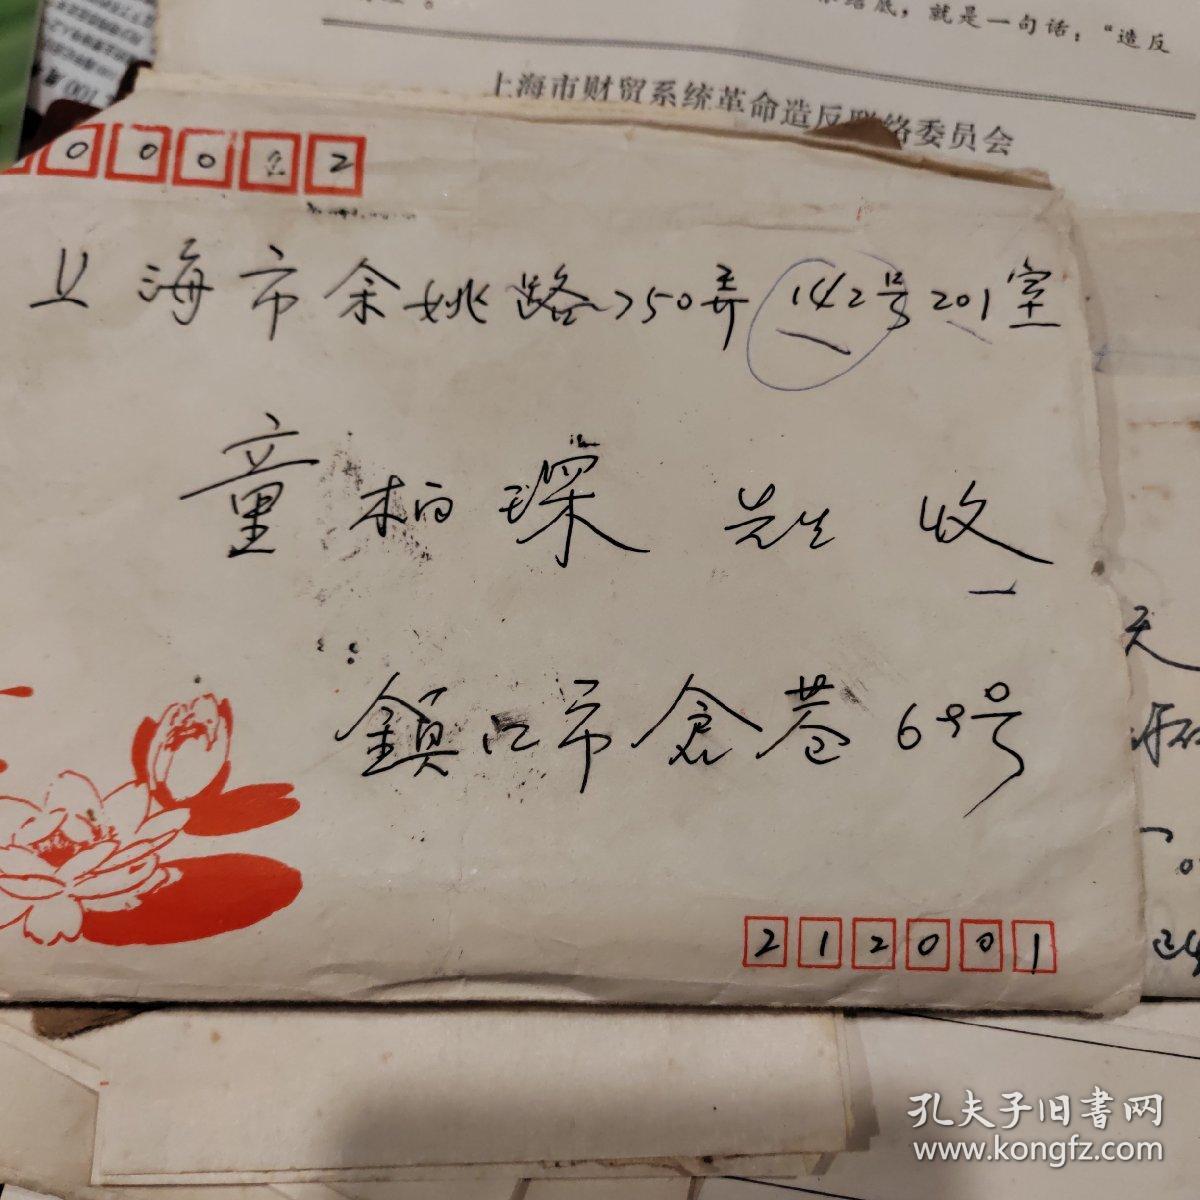 就是一句话：“造反
上海市财贸系统革命造反联络委员会
0 0 0 2
上海市余姚路750弄142号201室
童柏琛 先生 收
鎮江市倉巷69号
212001
天
孔夫子旧书网
www.kongfz.com